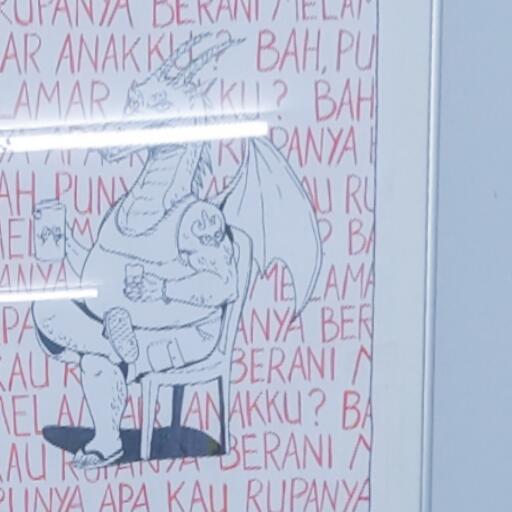 RUPANYA BERANI MELAM
AR ANAKKU? BAH, PU
LAMAR KU? BAH
PANYA
AH, PUNYA AU RU
MEL ? BA
ANYA MELAMA
PA ANYA BER
KAU R BERANI M
MELAMAR ANAKKU? BA
KAU RUPANYA BERANI M
PUNYA APA KAU RUPANYA